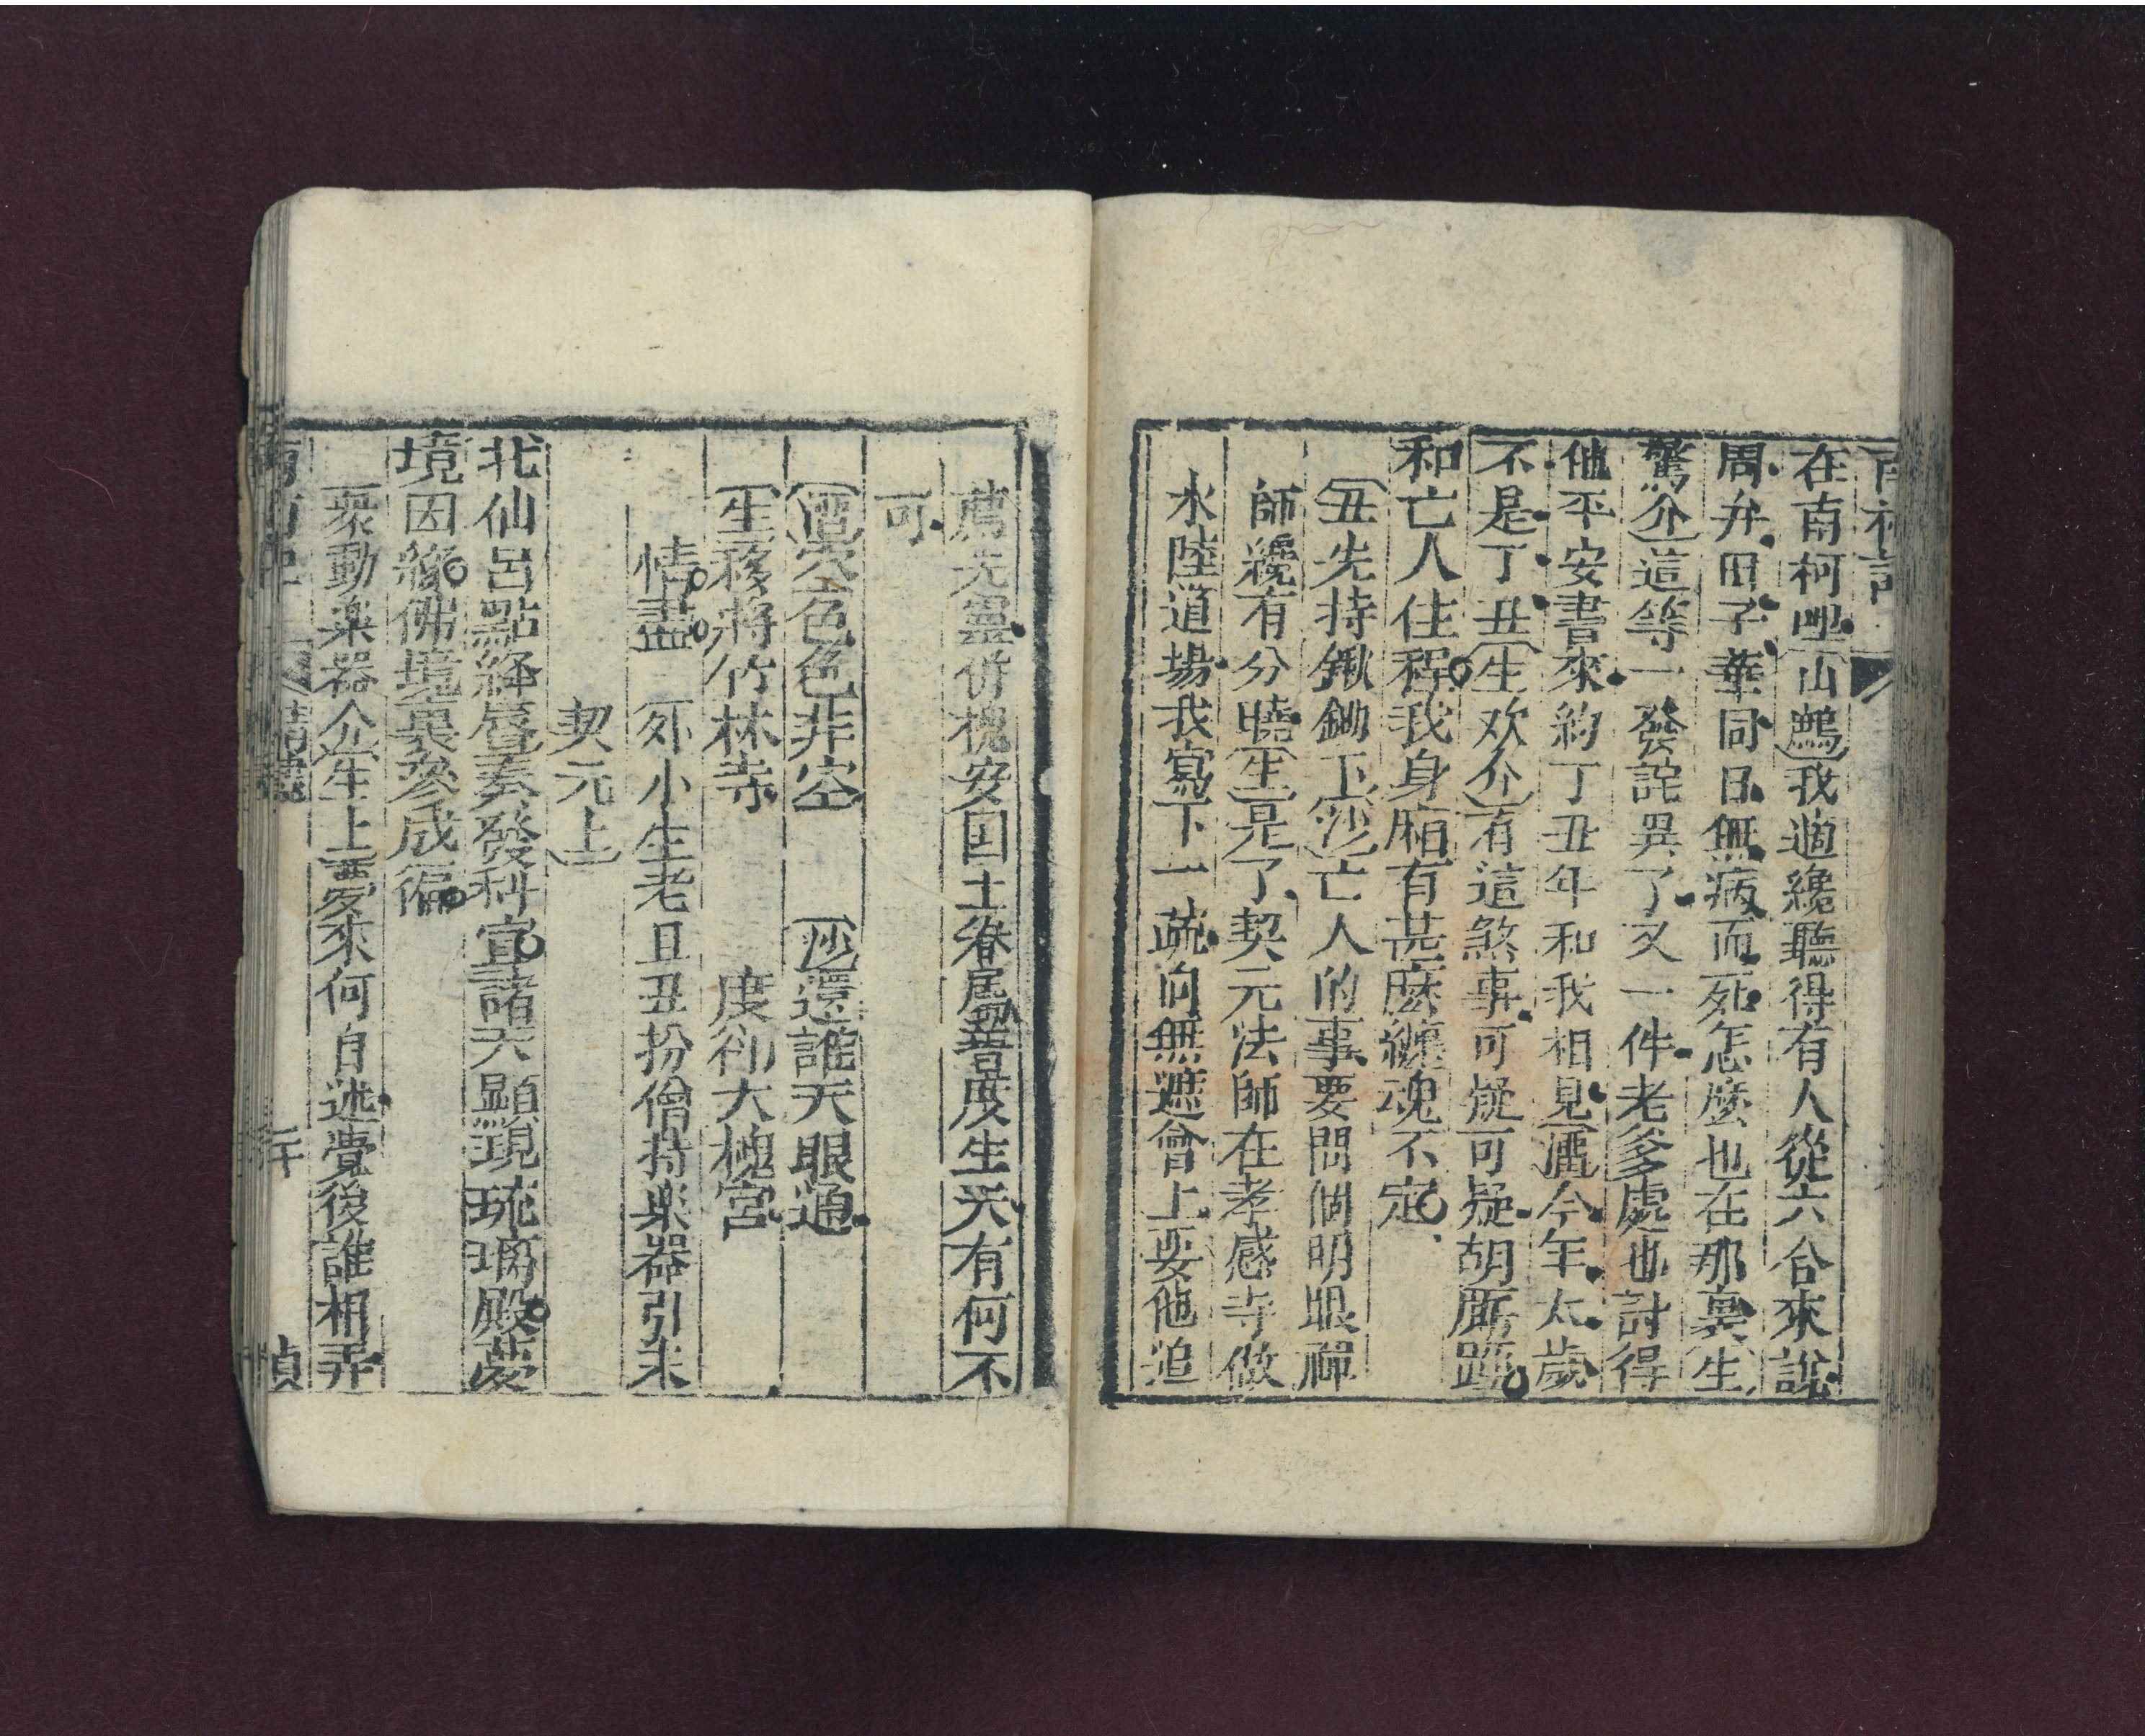 南柯記
在南柯哋山鷓我適纔聽得有人從六合來說
周弁田子華同日無病而死怎麼也在那裏生
驚介這等一發詫異了又一件老爹處也討得
他平安書來約丁丑年和我相見酒今年太歲
不是丁丑生欢介有這煞事可疑可疑胡廝踁
和亡人住程我身廂有甚麼纏魂不定
丑先持鍬鋤下沙亡人的事要問個明眼禪
師纔有分曉生是了契元法師在孝感寺做
水陸道場我寫下一疏向無遮會上要他追
薦先靈併槐安国土眷属普度生天有何不
可
酒空色色非空　沙還誰天眼通
生移將竹林寺　度卻大槐宮
情盡　外小生老旦丑扮僧持楽器引末
契元上
北仙呂點絳唇奏發科宣諸天顯現琉璃殿夢
境因緣佛境裏參成徧
衆動楽器介生上夢來何自迷覺後誰相弄